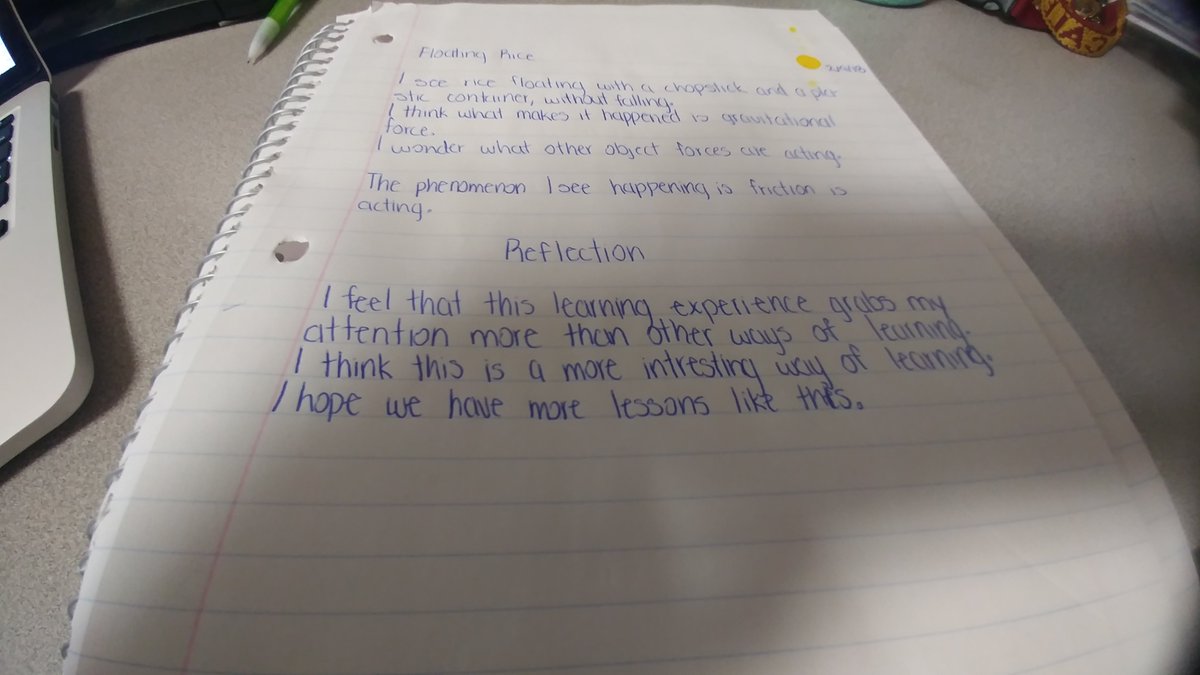 Floating Rice
I see rice floating with a chopstick and a pla
stic container, without falling.
I think what makes it happened is gravitational
force.
I wonder what other object forces are acting.
The phenomenon I see happening is friction is
acting.
Reflection
I feel that this learning experience grabs my
attention more than other ways of learning.
I think this is a more intresting way of learning.
I hope we have more lessons like this.